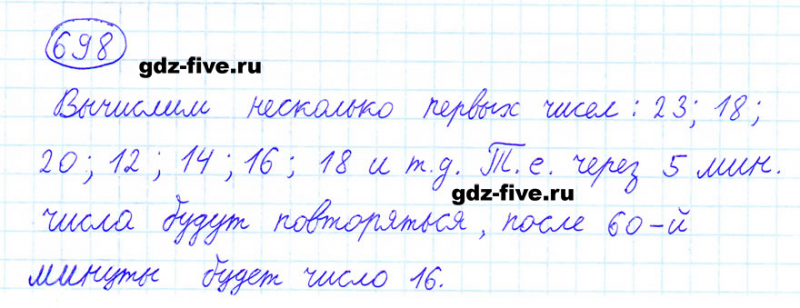 698
gdz-five.ru
Вычислим несколько первых чисел: 23; 18;
20; 12; 14; 16; 18 и т.д. Т.е. через 5 мин.
gdz-five.ru
числа будут повторяться, после 60-й
минуты будет число 16.